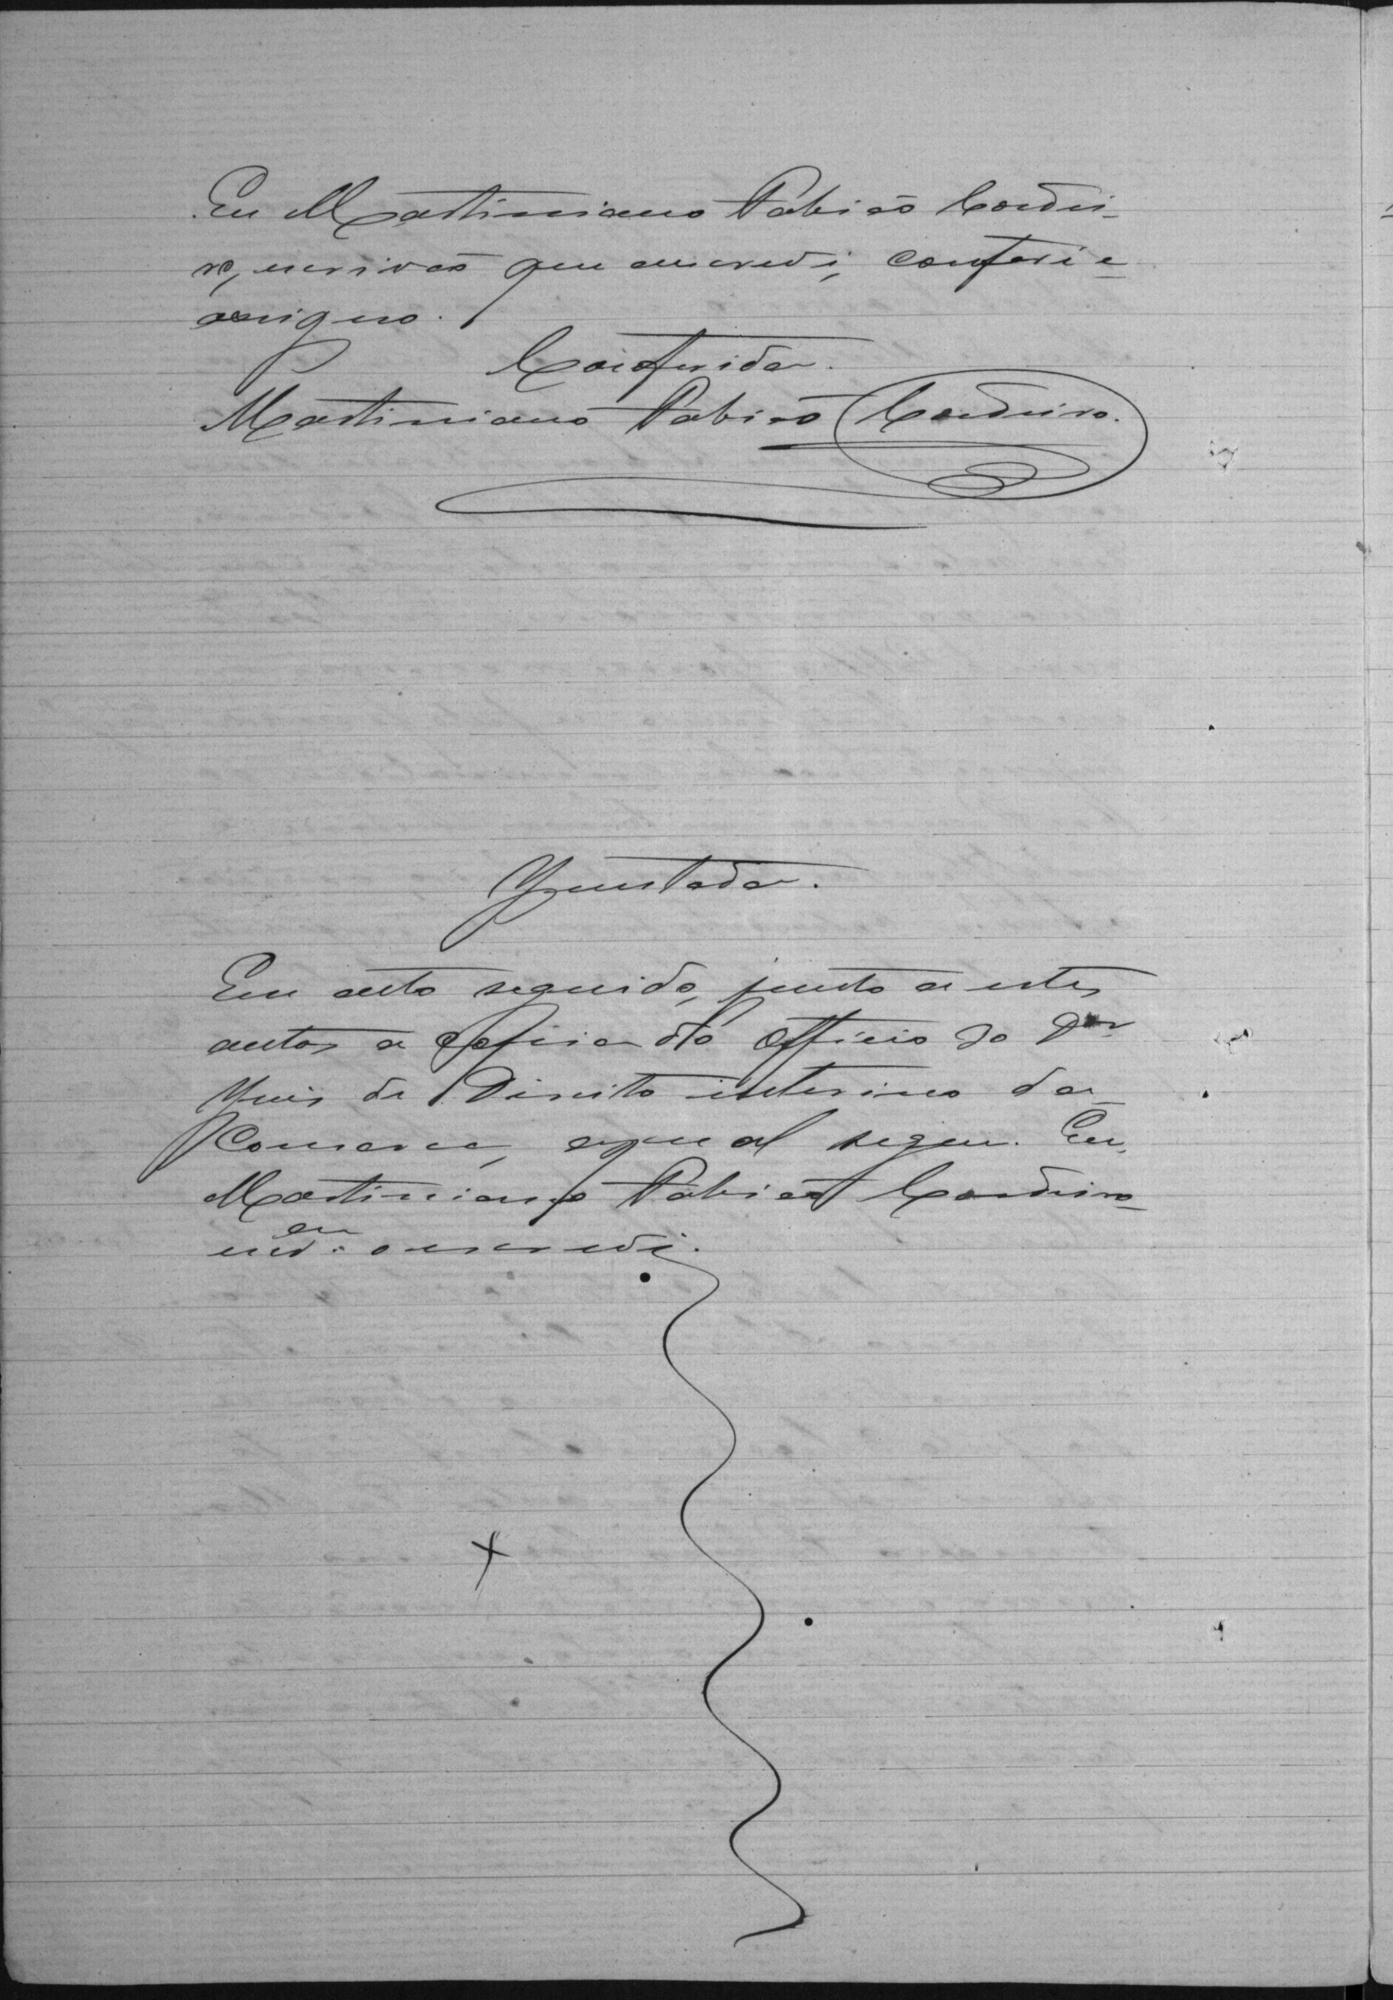 Eu Martiniano Fabião Cordei-
ro, escrivão que escrevi, conferi e
assigno.
Conferida.
Martiniano Fabião Cordeiro.
Juntada.
Em acto seguido, junto a estes
autos a copia do officio do Dor
Juis de Direito interino da
Comarca, a qual segue. Eu,
Martiniano Fabião Cordeiro
escrevi.